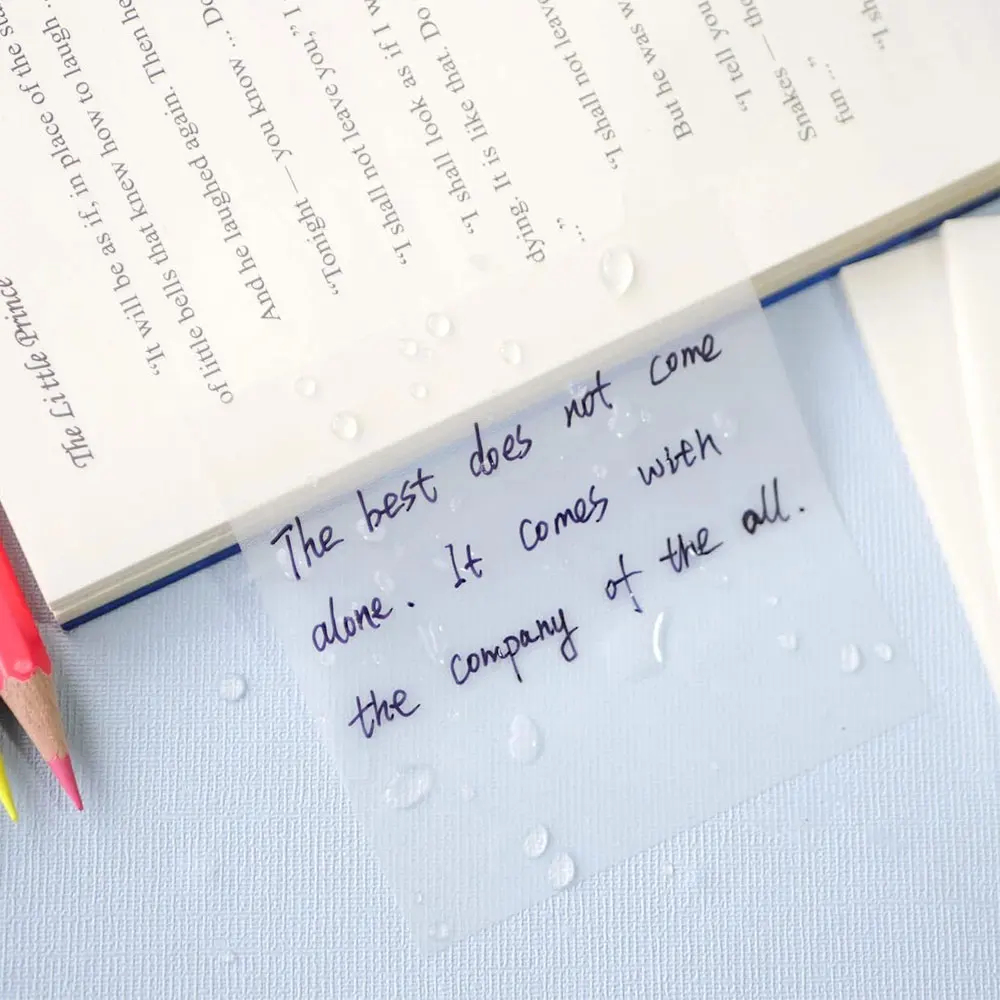 The Little Prince
"It will be as if, in place of the sta
of little bells that knew how to laugh ..
And he laughed again. Then he
"Tonight — you know ... Do
"I shall not leave you," I
"I shall look as if I w
dying. It is like that. Do
..."
"I shall not leave
But he was w
"I tell you
Snakes — tho
fun ..."
"I sh
The best does not come
alone. It comes with
the company of the all.